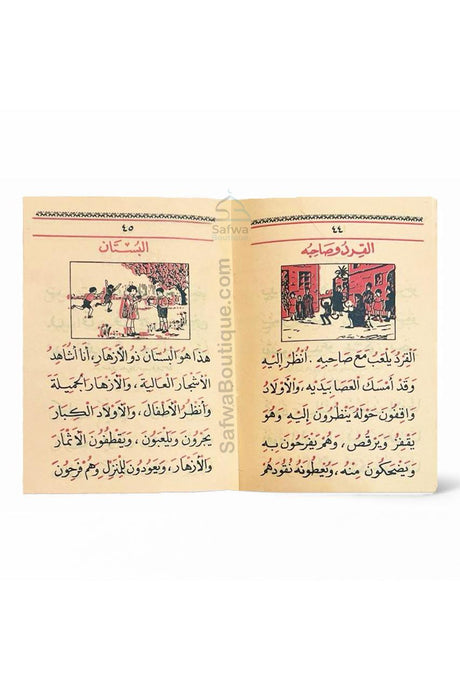 ٤٤
القِرْدُ وَصَاحِبُهُ
القِرْدُ يَلْعَبُ مَعَ صَاحِبِهِ . اُنْظُرْ إِلَيْهِ
وَقَدْ أَمْسَكَ العَصَا بِيَدَيْهِ، وَالأَوْلَادُ
وَاقِفُونَ حَوْلَهُ يَنْظُرُونَ إِلَيْهِ وَهُوَ
يَقْفِزُ وَيَرْقُصُ ، وَهُمْ يَفْرَحُونَ بِهِ
وَيَضْحَكُونَ مِنْهُ ، وَيُعْطُونَهُ نُقُودَهُمْ
٤٥
البُسْتَان
هَذَا هُوَ البُسْتَانُ ذُو الأَزْهَارِ، أَنَا أُشَاهِدُ
الأَشْجَارَ العَالِيَةَ ، وَالأَزْهَارَ الجَمِيلَةَ
وَأَنْظُرُ الأَطْفَالَ ، وَالأَوْلَادَ الكِبَارَ
يَجْرُونَ وَيَلْعَبُونَ ، وَيَقْطِفُونَ الأَثْمَارَ
وَالأَزْهَارَ ، وَيَعُودُونَ لِلْمَنْزِلِ وَهُمْ فَرِحُونَ
Safwa
Boutique
SafwaBoutique.com